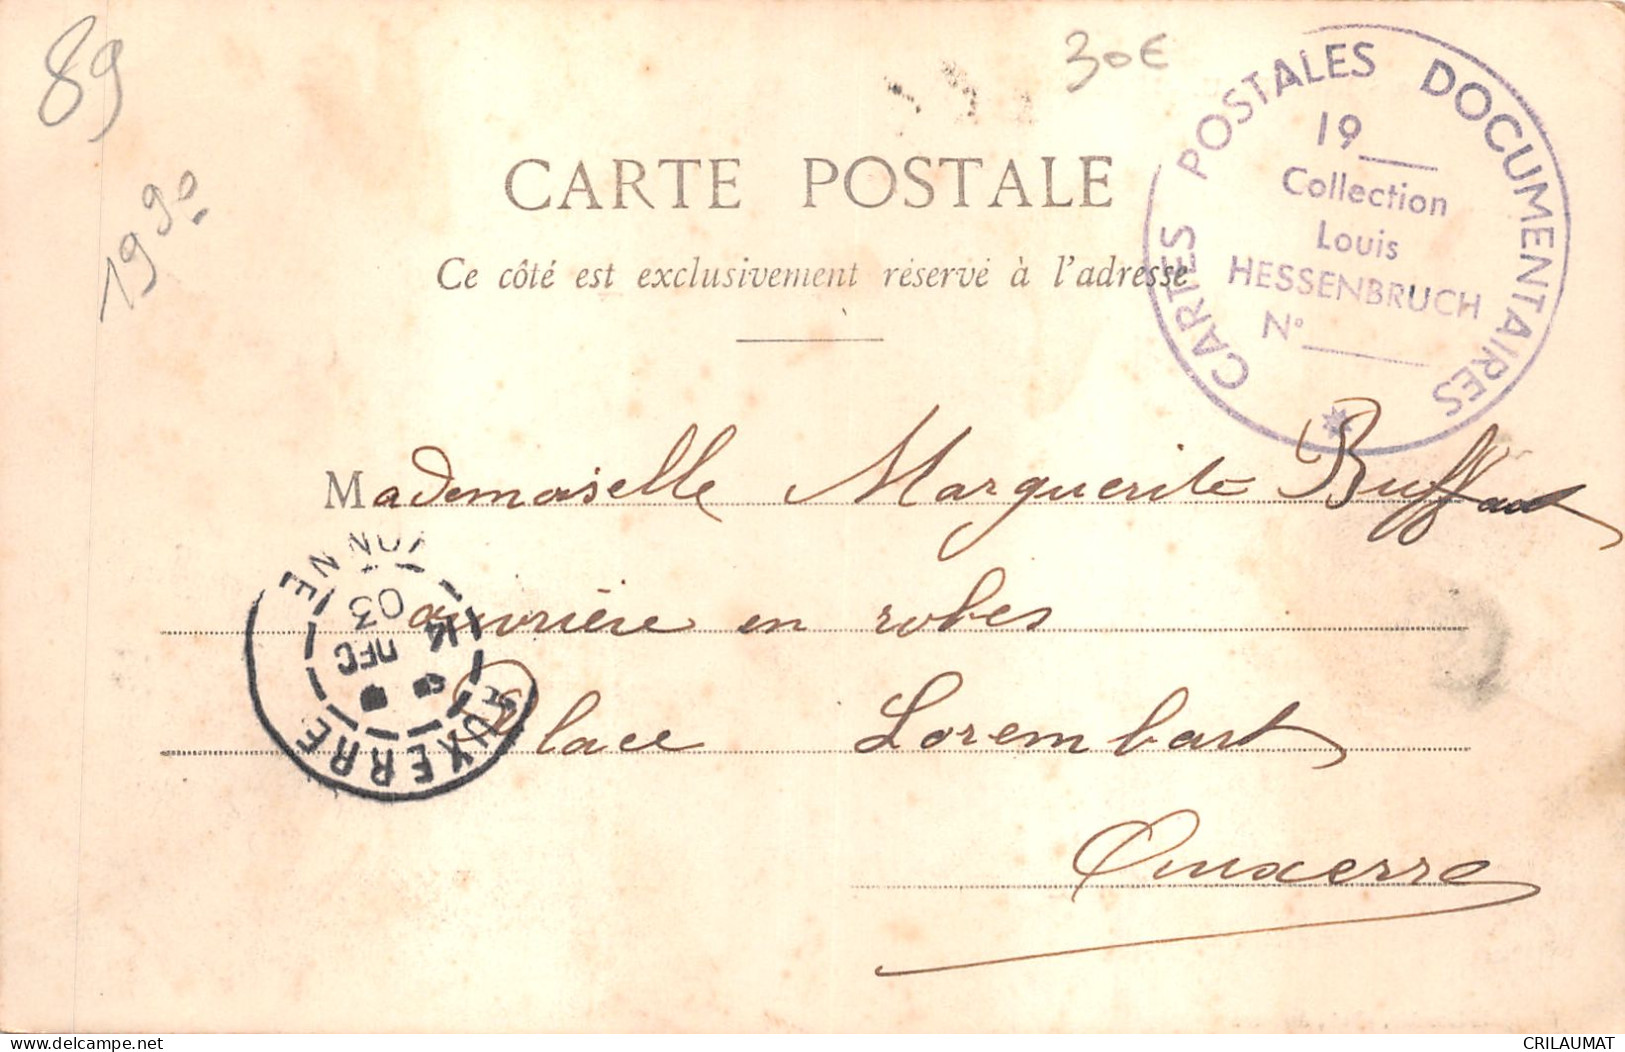 89
30€
1990
CARTES POSTALES DOCUMENTAIRES
19___
Collection
Louis
HESSENBRUCH
N° ____
CARTE POSTALE
Ce côté est exclusivement réservé à l'adresse
Mademoiselle Marguerite
ouvrière en robes
Place Lorembart
Auxerre
AUXERRE YONNE
14 DEC
03
CRILAUMAT